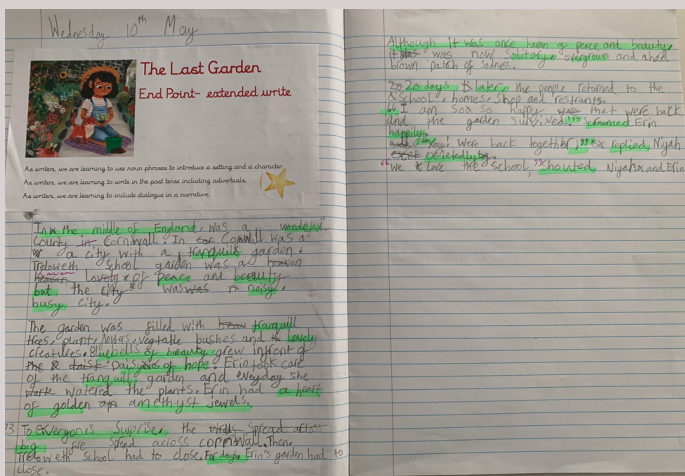 Wednesday 10th May
The Last Garden
End Point- extended write
As writers, we are learning to use noun phrases to introduce a setting and a character.
As writers, we are learning to write in the past tense including adverbials.
As writers, we are learning to include dialogue in a narrative.
In the middle of England, was a wonderful
County in Cornwall. In Cornwall was a
a city with a tranquil garden.
Treloweth School garden was a
of peace and beauty
but the city was was noisy,
busy city.
The garden was filled with tranquill
trees, plant, flowers, vegtable bushes and lovely
creatures. Bluebells of beauty grew infront of
the of hope. Erin took care
of the tranquil garden and everyday she
watered the plants. Erin had a heart
of golden amethyst jewels.
To everyone's Suprise, the spread across
big spread across cornwall. Then,
Treloweth school had to close. For days Erin's garden had to
close.
Although it was once haven of peace and beauty
it was now solutary overgrown and a
brown patch of sadnes.
20 days later the people returned to the
school, homes, shop and restrants.
"I am so happy that were back
and the garden survived" screamed Erin
happily.
"Yay! Were back together" replied, Niyah
exictedly.
"We love the school," shouted, Niyah and Erin